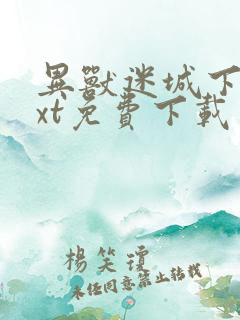 異獸迷城下
xt免費下載
楊笑瓊
未經同意禁止轉載